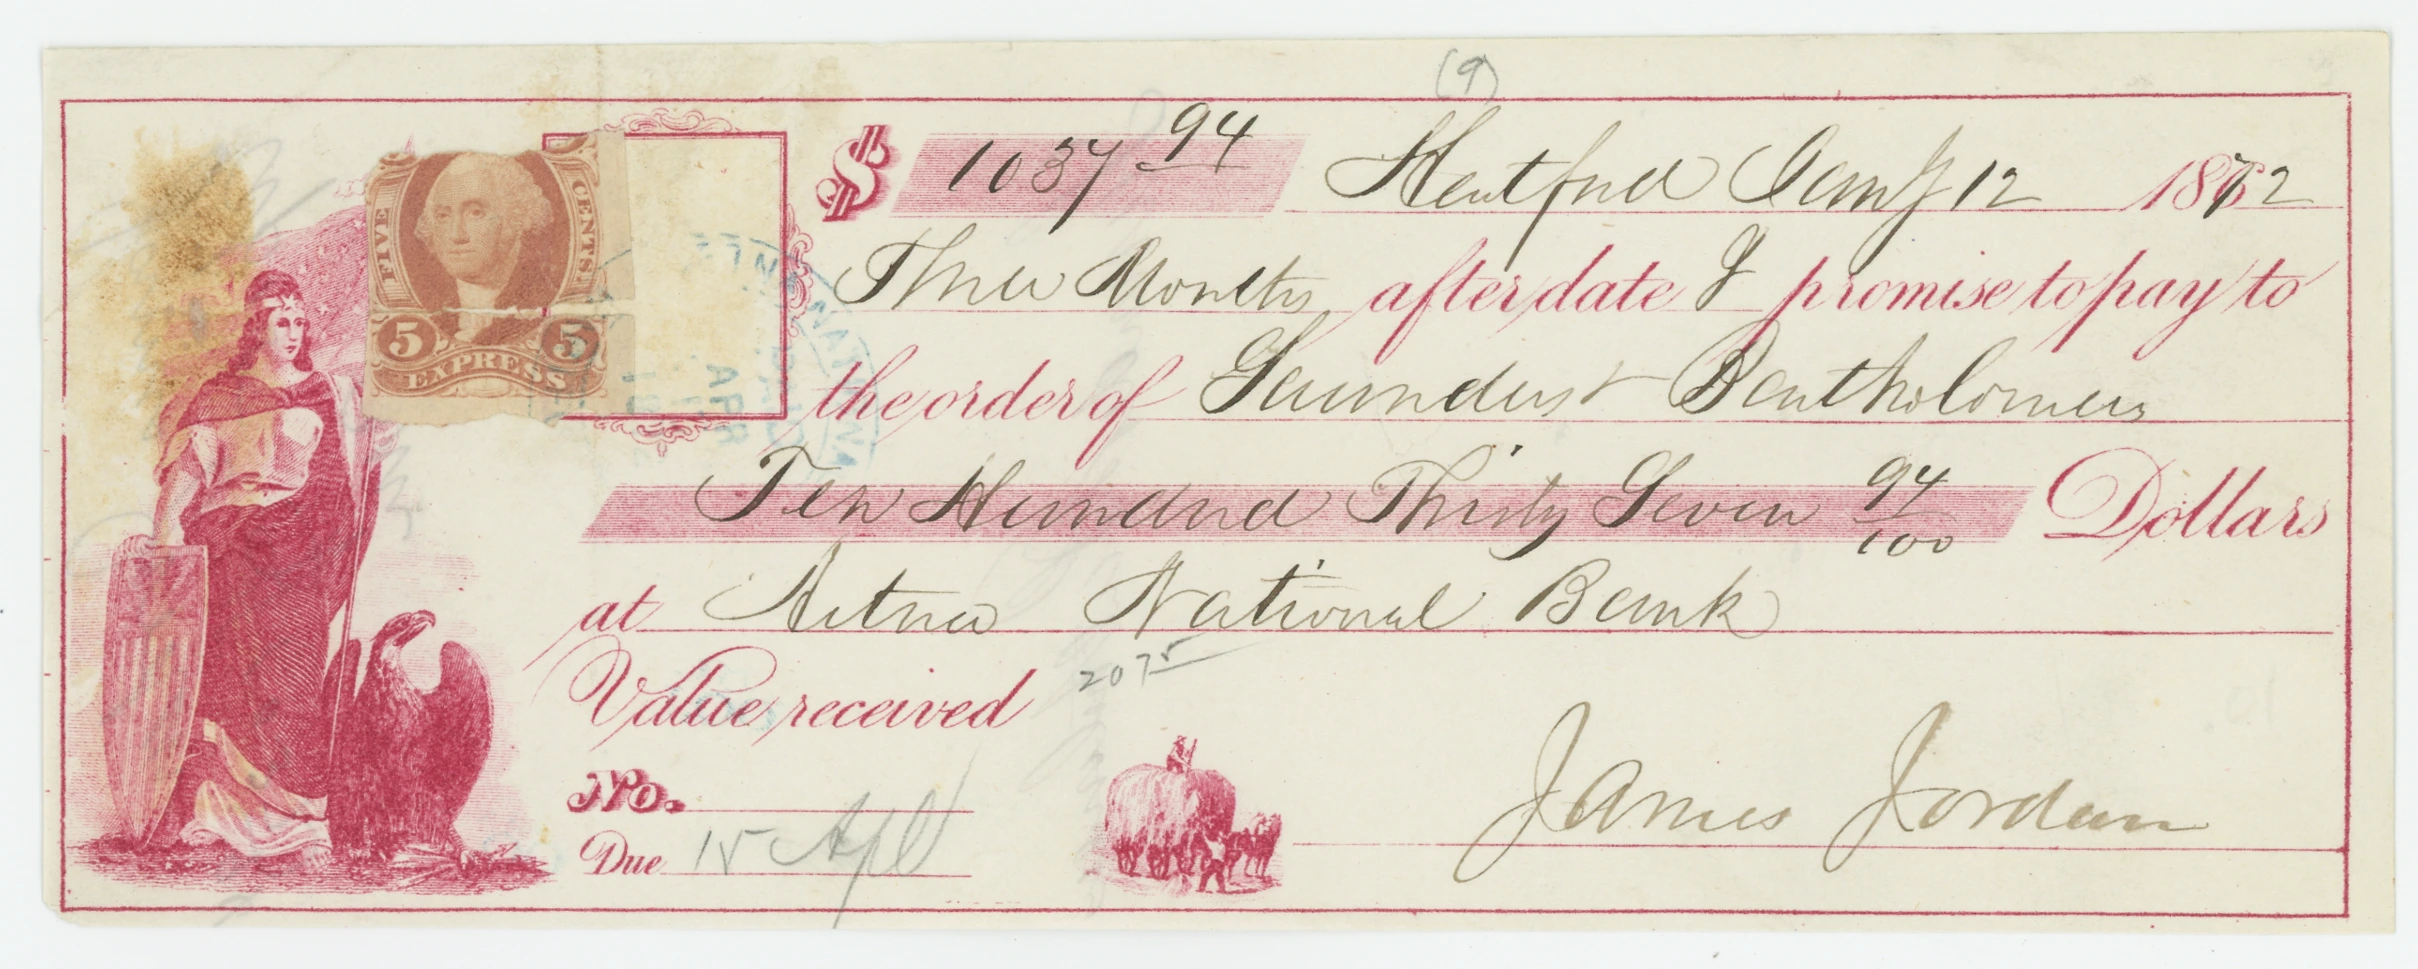 (9)
$ 1037 94 Hartford Jany 12 1872
Three Months after date I promise to pay to
the order of Saunders & Bartholomew
Ten Hundred Thirty Seven 94/100 Dollars
at Aetna National Bank
Value received 2075
No.
Due 15 Apl
James Jordan
FIVE CENTS
5 5
EXPRESS
PAID
APR